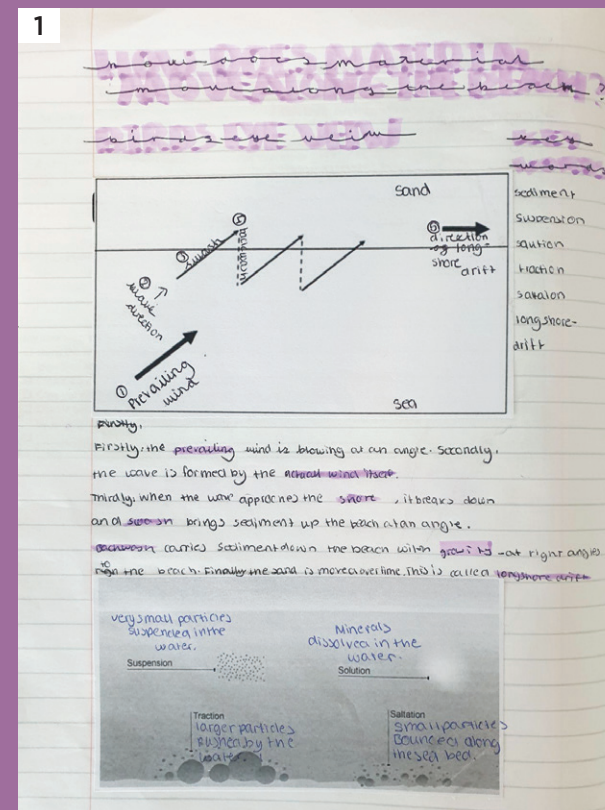 1
how does material
move along the beach?
birds eye veiw
key
words
sediment
suspension
soution
traction
sataion
longshore-
drift
sand
⑤
backwash
③ swash
② ↗
wave
direction
① Prevailing
wind
⑥
direction
of long-
shore
drift
sea
Firstly,
Firstly, the prevailing wind is blowing at an angle. Secondly,
the wave is formed by the actual wind itself.
Thirdly, when the wave approches the shore, it breaks down
and swash brings sediment up the beach at an angle.
backwash carries sediment down the beach with gravity - at right angles
to the beach. Finally the sand is moved over time. This is called longshore drift
very small particles
suspended in the
water.
Suspension
Minerals
dissolved in the
water.
Solution
Traction
larger particles
pushed by the
water
Saltation
small particles
bounced along
the sea bed.